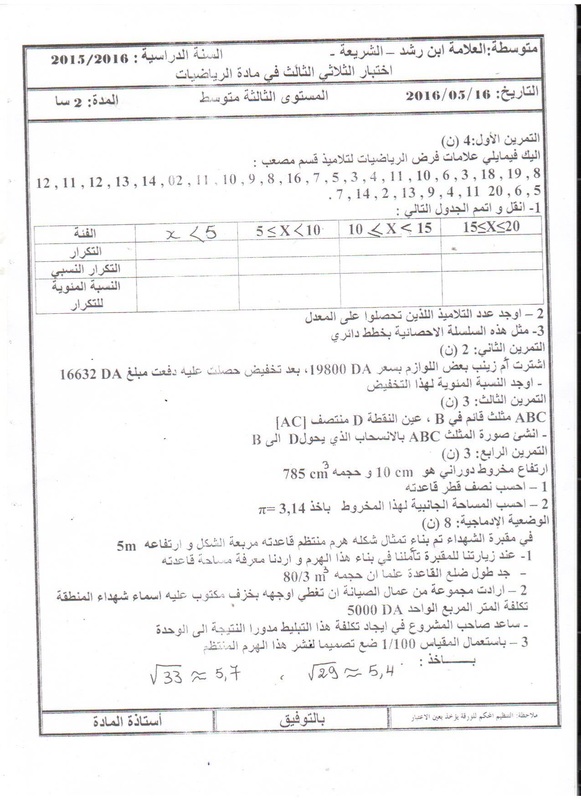 متوسطة: العلامة ابن رشد – الشريعة - السنة الدراسية : 2015/2016
اختبار الثلاثي الثالث في مادة الرياضيات
التاريخ: 2016/05/16 المستوى الثالثة متوسط المدة: 2 سا
التمرين الأول: 4 (ن)
اليك فيمايلي علامات فرض الرياضيات لتلاميذ قسم مصعب :
12 , 11 , 12 , 13 , 14 , 02 , 11 , 10 , 9 , 8 , 16 , 7 , 5 , 3 , 4 , 11 , 10 , 6 , 3 , 18 , 19 , 8
. 7 , 14 , 2 , 13 , 9 , 4 , 11 20 , 6 , 5
1- انقل و اتمم الجدول التالي :
الفئة x < 5 5 ≤ X < 10 10 ≤ X < 15 15≤X≤20
التكرار
التكرار النسبي
النسبة المئوية للتكرار
2 – اوجد عدد التلاميذ اللذين تحصلوا على المعدل
3- مثل هذه السلسلة الاحصائية بخطط دائري
التمرين الثاني: 2 (ن)
اشترت أم زينب بعض اللوازم بسعر 19800 DA، بعد تخفيض حصلت عليه دفعت مبلغ 16632 DA
- اوجد النسبة المئوية لهذا التخفيض
التمرين الثالث: 3 (ن)
ABC مثلث قائم في B ، عين النقطة D منتصف [AC]
- انشئ صورة المثلث ABC بالانسحاب الذي يحول D الى B
التمرين الرابع: 3 (ن)
ارتفاع مخروط دوراني هو 10 cm و حجمه 785 cm³
1 – احسب نصف قطر قاعدته
2 – احسب المساحة الجانبية لهذا المخروط باخذ π= 3,14
الوضعية الإدماجية: 8 (ن)
في مقبرة الشهداء تم بناء تمثال شكله هرم منتظم قاعدته مربعة الشكل و ارتفاعه 5m
1- عند زيارتنا للمقبرة تأملنا في بناء هذا الهرم و اردنا معرفة مساحة قاعدته
- جد طول ضلع القاعدة علما ان حجمه 80/3 m³
2 – ارادت مجموعة من عمال الصيانة ان تغطي اوجهه بخزف مكتوب عليه اسماء شهداء المنطقة
تكلفة المتر المربع الواحد 5000 DA
- ساعد صاحب المشروع في ايجاد تكلفة هذا التبليط مدورا النتيجة الى الوحدة
3 – باستعمال المقياس 1/100 ضع تصميما لنشر هذا الهرم المنتظم
باخذ :
√33 ≈ 5,7 ، √29 ≈ 5,4
ملاحظة: التنظيم المحكم للورقة يؤخذ بعين الاعتبار بالتوفيق أستاذة المادة